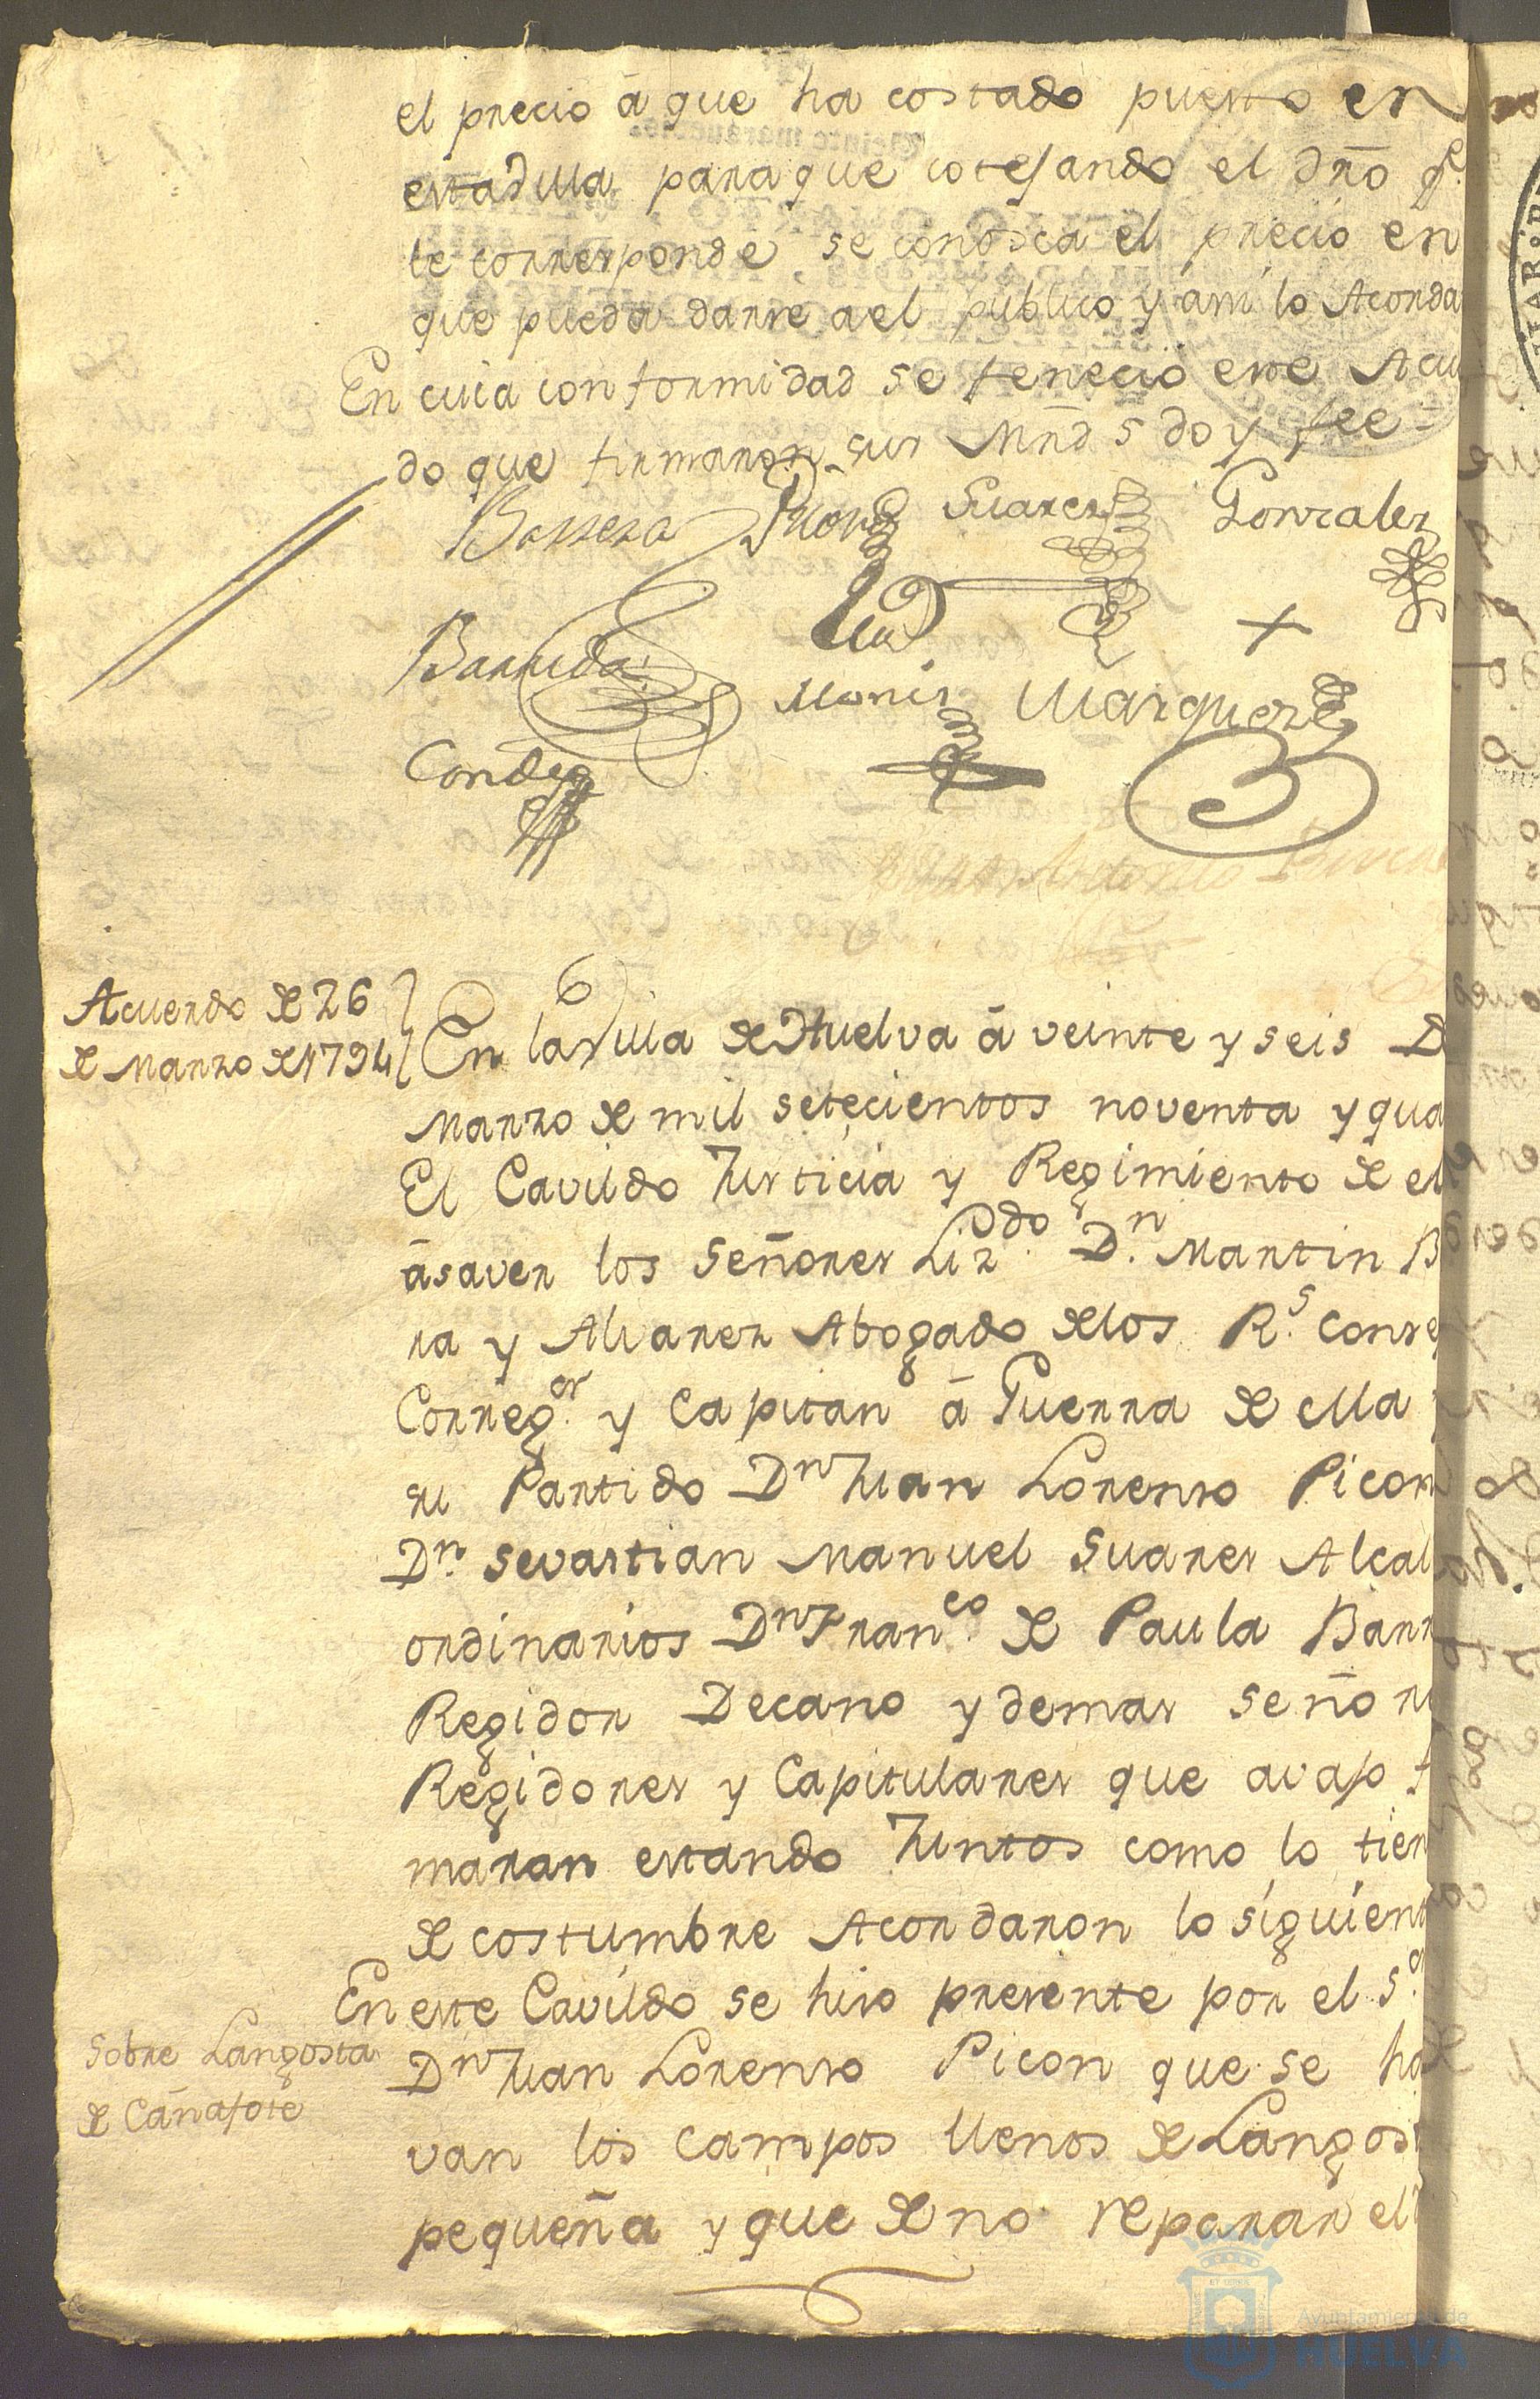 el precio á que ha costado puesto en
esta Villa para que cotejando el dr̃o q.e
le corresponde se conosca el precio en
que pueda darse a el publico y assi lo Acorda
En cuia conformidad se feneció este Acu
do que firmaron sus Mrz̃d s doy fee =
Barrera Picon Suarez Gonzalez
Barreda
Moniz Marquez
Conde
Acuerdo de 26
de Marzo de 1794
En la Villa de Huelva á veinte y seis D
Marzo de mil setecientos noventa y qua
El Cavildo Justicia y Regimiento de el
ásaver los Señores Liz.do D.n Martin B
ra y Alvarez Abogado de los R.s Conse
Correg.or y Capitan á Guerra de ella
su Partido D.n Juan Lorenso Picon
D.n Sevastian Manuel Suares Alcal
ordinarios D.n Fran.co de Paula Barr
Regidor Decano y demas Señor
Regidores y Capitulares que avajo f
maran estando Juntos como lo tien
de costumbre Acordaron lo siguient
En este Cavildo se hiso presente por el S.r
Sobre Langosta
de Cañafote
D.n Juan Lorenso Picon que se ha
van los campos llenos de Langos
pequeña y que de no reparar el
Ayuntamiento de
HUELVA